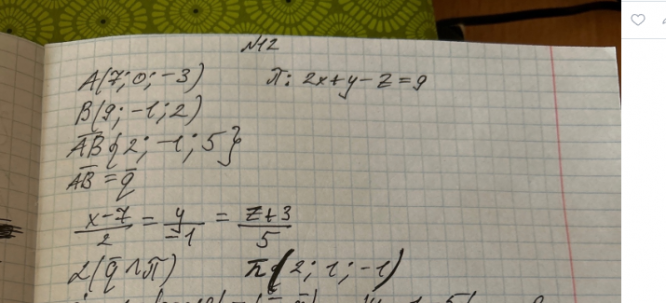 №12
A(7; 0; -3) π: 2x+y-z=9
B(9; -1; 2)
AB{2; -1; 5}
AB = q
x-7/2 = y/-1 = z+3/5
∠(q ^ π) n{2; 1; -1)